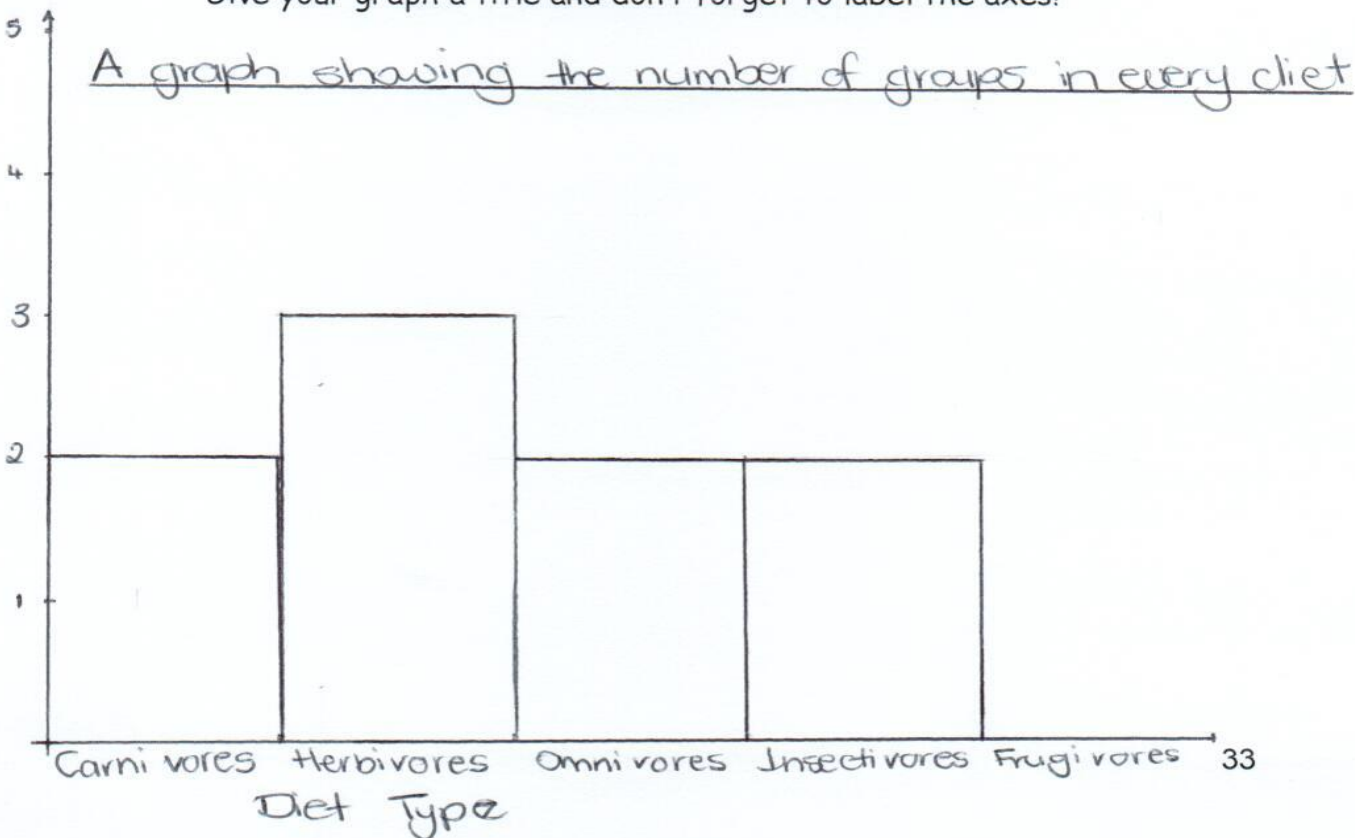 Give your graph a title and don't forget to label the axes.
5
A graph showing the number of groups in every diet
4
3
2
1
Carnivores Herbivores Omnivores Insectivores Frugivores 33
Diet Type